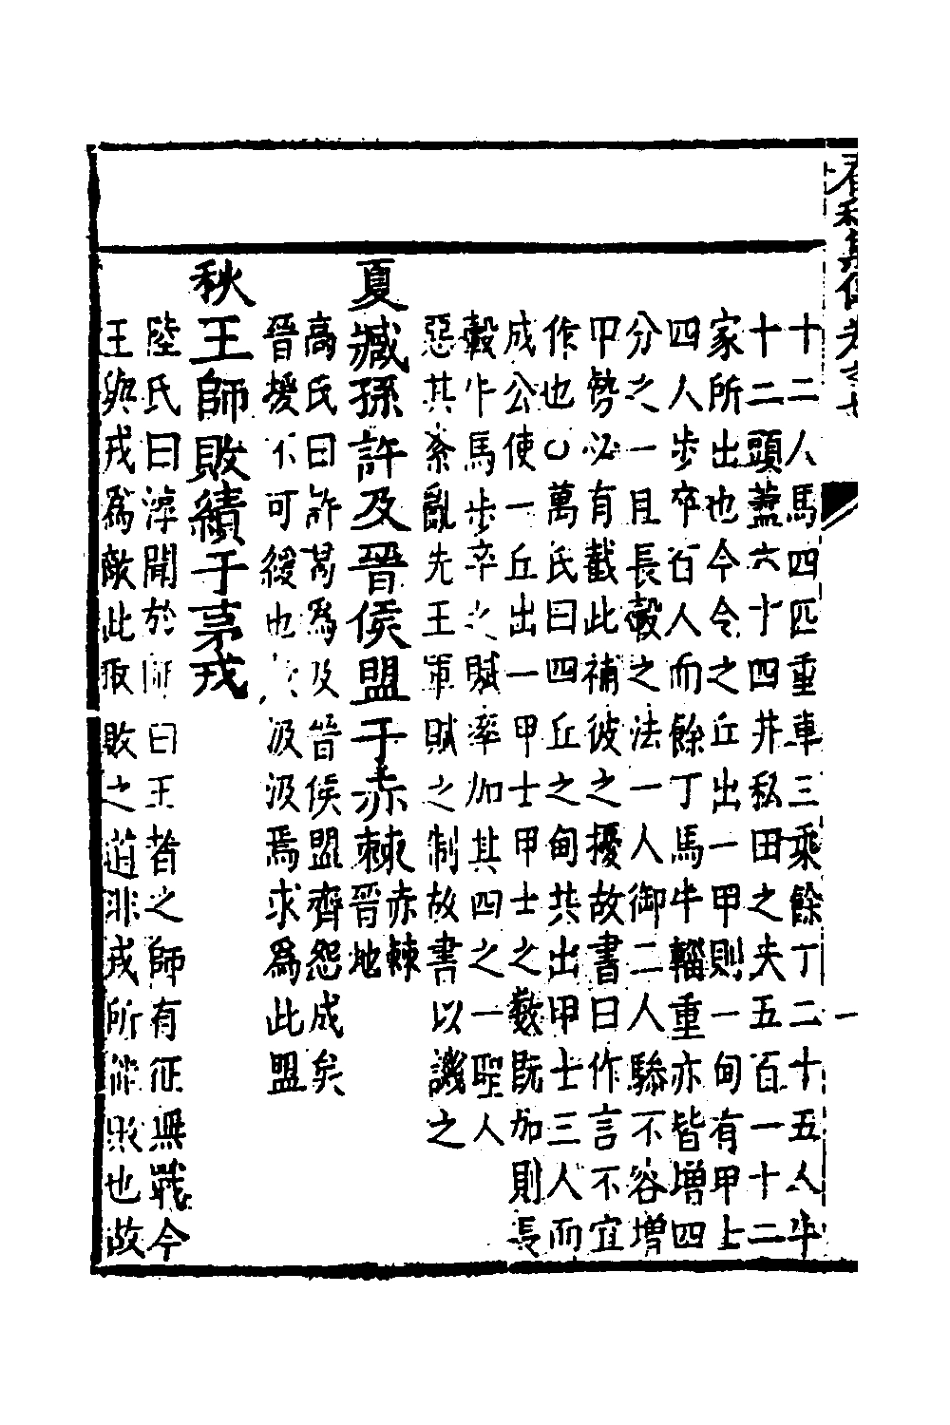 十二人馬四匹重車三乘餘丁二十五人牛
十二頭蓋六十四井私田之夫五百一十二
家所出也今令之丘出一甲則一甸有甲士
四人步卒百人而餘丁馬牛輜重亦皆增四
分之一且長轂之法一人御二人驂不容增
甲勢必有截此補彼之擾故書曰作言不宜
作也〇萬氏曰四丘之甸共出甲士三人而
成公使一丘出一甲士甲士之數既加則長
轂牛馬步卒之賦率加其四之一聖人
惡其紊亂先王軍賦之制故書以譏之
夏臧孫許及晉侯盟于赤棘晉地赤棘
高氏曰許曷為及晉侯盟齊怨成矣
晉援不可緩也汲汲焉求為此盟
秋王師敗績于茅戎
陸氏曰淳聞於師曰王者之師有征無戰今
王與戎為敵此取敗之道非戎所能敗也故